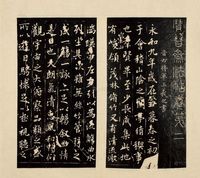 永和九年歲在癸丑暮春之初會
于會稽山陰之蘭亭脩稧事
也群賢畢至少長咸集此地
有峻領茂林脩竹又有清流激
湍暎帶左右引以為流觴曲水
列坐其次雖無絲竹管弦之
盛一觴一詠亦足以暢敘幽情
是日也天朗氣清惠風和暢仰
觀宇宙之大俯察品類之盛
所以遊目騁懷足以極視聽之